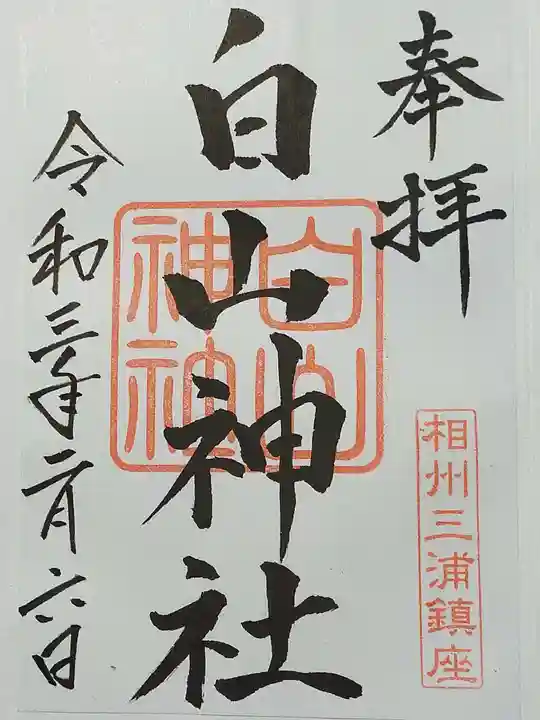 奉拝
相州三浦鎮座
白山神社
白山
神社
令和三年二月六日